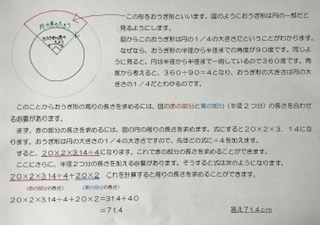 円のまわり
この形をおうぎ形といいます。図のようにおうぎ形は円の一部だと
見るようにします。
図からこのおうぎ形は円の1/4の大きさだということがわかります。
なぜなら、おうぎ形の半径から半径までの角度が90度です。同じよ
うに見ると、円は半径から半径まで一周しているので360度です。角
度から考えると、360÷90=4となり、おうぎ形の大きさは円の大
きさの1/4だとわかります。
このことからおうぎ形の周りの長さを求めるには、図の赤の部分と青の部分(半径2つ分)の長さを合わせ
る必要があります。
まず、赤の部分の長さを求めるには、図の円の周りの長さを求めます。式にすると20×2×3.14にな
ります。おうぎ形は円の大きさの1/4の大きさですので、先ほどの式に÷4を加えます。
すると、20×2×3.14÷4になります。これで赤の部分の長さを求めることができます。
ここにさらに、半径2つ分の長さを加える必要があります。そうすると式は次のようになります。
20×2×3.14÷4+20×2 これを計算すると周りの長さを求めることができます。
(赤の部分の長さ) (青の部分の長さ)
20×2×3.14÷4+20×2=31.4+40
=71.4
答え71.4cm